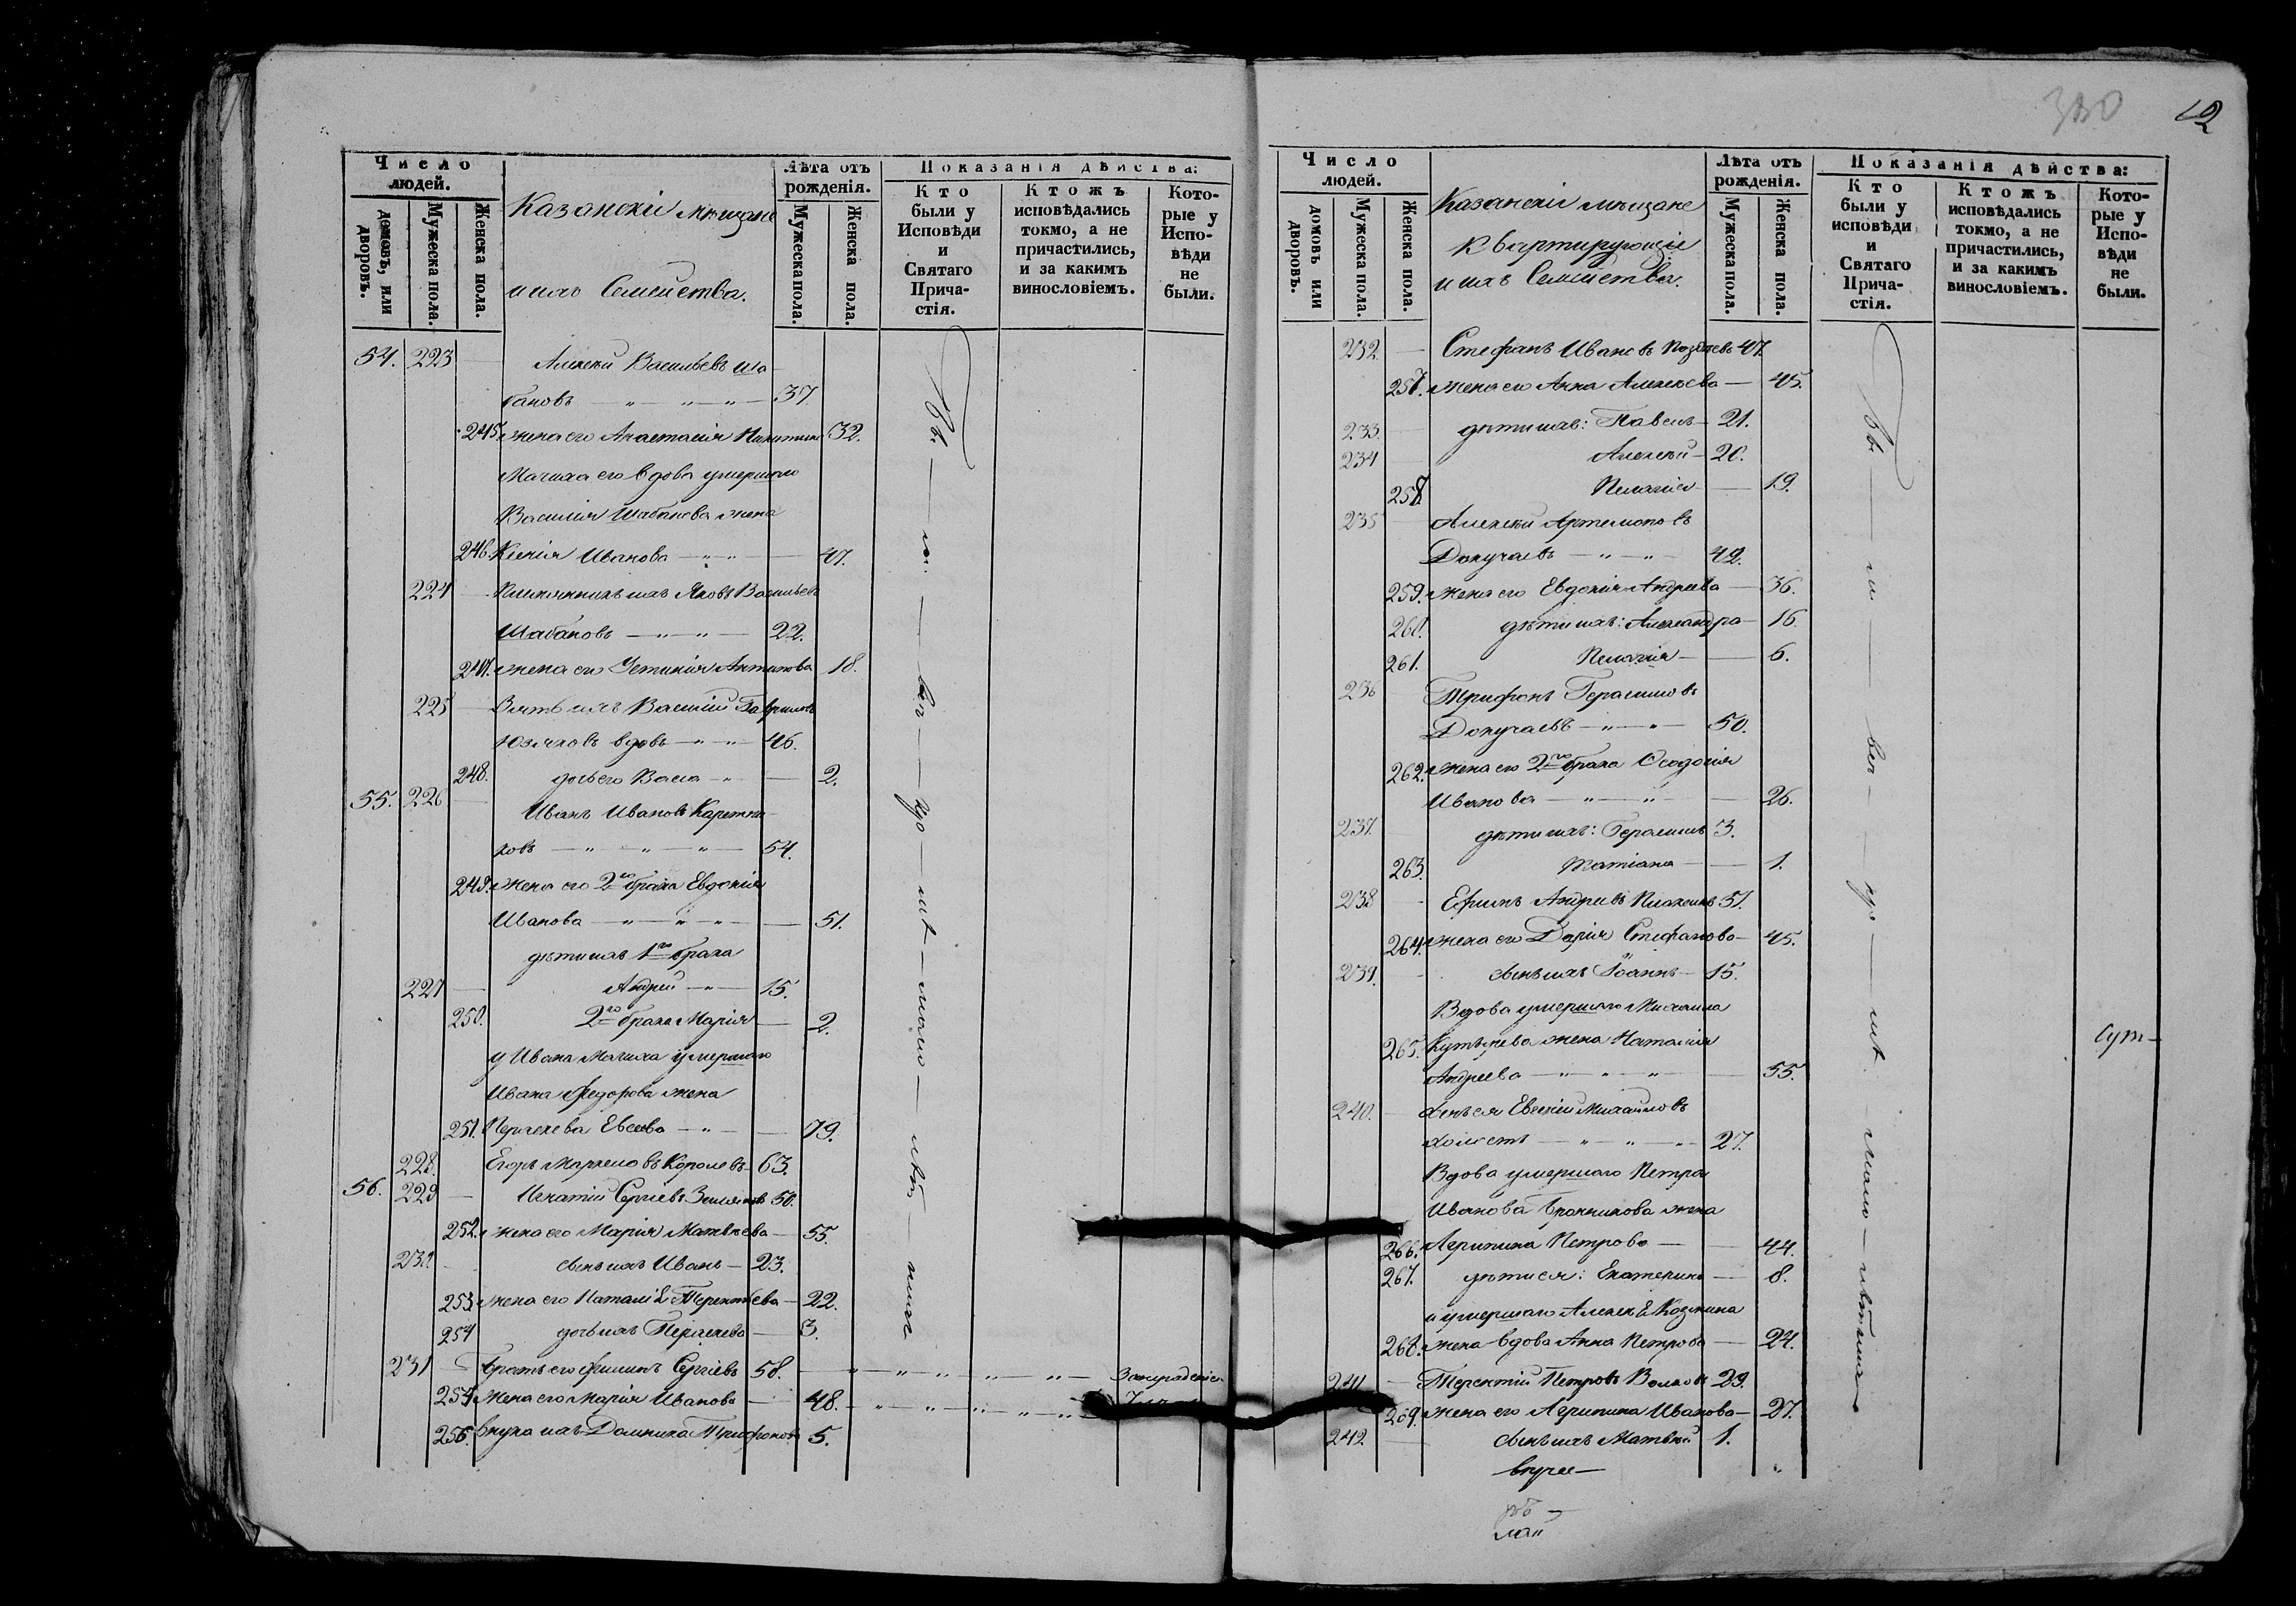 380
12
Число людей.
домовъ, или дворовъ.
Мужеска пола.
Женска пола.
Казанскіи мѣщане
и ихъ Семейства.
Лѣта отъ рожденія.
Мужеска пола.
Женска пола.
Показанія дѣйства:
Кто были у Исповѣди и Святаго Прича-стія.
Ктожъ исповѣдались токмо, а не причастились, и за какимъ винословіемъ.
Кото-рые у Испо-вѣди не были.
54. 223 — Алексѣй Васильевъ Ша-
бановъ — „ — „ — „ — 37.
245. жена его Анастасія Никитина 32.
Мачиха его вдова умершаго
Василія Шабанова жена
246. Ксенія Иванова — „ — „ — 47.
224 — Племянникъ ихъ Яковъ Васильевъ
Шабановъ — „ — „ — 22.
247. жена его Устинія Антипова 18.
225 — Зять ихъ Василій Гавриловъ
вдовъ — „ — „ — 46.
248. дочь его Васса — „ — 2.
55. 226 — Иванъ Ивановъ Каретни-
ковъ — „ — „ — „ — 54.
249. жена его 2го брака Евдокія
Иванова — „ — „ — „ — 51.
дѣти ихъ 1го брака
227 — Андрей — „ — 15.
250. 2го брака Марія — 2.
у Ивана мачиха умершаго
Ивана Федорова жена
251. Евсеева — „ — 79.
228. Егоръ Королевъ 63.
56. 229 — Игнатій Сергіевъ 50.
252. жена его Марія Матвѣева — 55.
230. сынъ ихъ Иванъ — 23.
253. жена его Наталія Терентьева — 22.
254 дочь ихъ — 3.
231 — Братъ его Филиппъ Сергіевъ 58. — „ — „ — „ — „ — „ —
255. Жена его Марія Иванова — 48. — „ — „ — „ — „ — „
256. внука ихъ Домника Трифонова 5.
Число людей.
домовъ или дворовъ.
Мужеска пола.
Женска пола.
Казанскіи мѣщане
квартирующіи
и ихъ Семейства.
Лѣта отъ рожденія.
Мужеска пола.
Женска пола.
Показанія дѣйства:
Кто были у исповѣди и Святаго Прича-стія.
Ктожъ исповѣдались токмо, а не причастились, и за какимъ винословіемъ.
Кото-рые у Испо-вѣди не были.
232 — Стефанъ Ивановъ 47.
257. жена его Анна Алексѣева — 45.
233. дѣти ихъ: Павелъ — 21.
234 Алексѣй — 20.
258. Пелагія — 19.
235 — Алексѣй Артемоновъ
Докучаевъ — „ — „ 42.
259. жена его Евдокія Андреева — 36.
260. дѣти ихъ: Александра — 16.
261. Пелагія — 6.
236 Трифонъ Герасимовъ
Докучаевъ — „ — „ 50.
262. жена его 2го брака Ѳеодосія
Иванова — „ — „ — 26.
237. дѣти ихъ: Герасимъ 3.
263. Татіана — 1.
238 — Ефимъ Андреевъ 51.
264. жена его Дарія Стефанова — 45.
239. сынъ ихъ Іоаннъ — 15.
Вдова умершаго Михаила
265. жена Наталія
Андреева — „ — „ — „ — 55.
240. — сынъ ея Евгеній Михайловъ
холостъ — „ — „ — „ 27.
Вдова умершаго Петра
Иванова Бронникова жена
266. Агрипина Петрова — 44.
267. дѣти ея: Екатерина — 8.
и умершаго Алексѣя Козмина
268. жена вдова Анна Петрова — 24.
241 — Терентій Петровъ Волковъ 29.
269. жена его Агрипина Иванова — 27.
242 — сынъ ихъ Матвѣй 1.